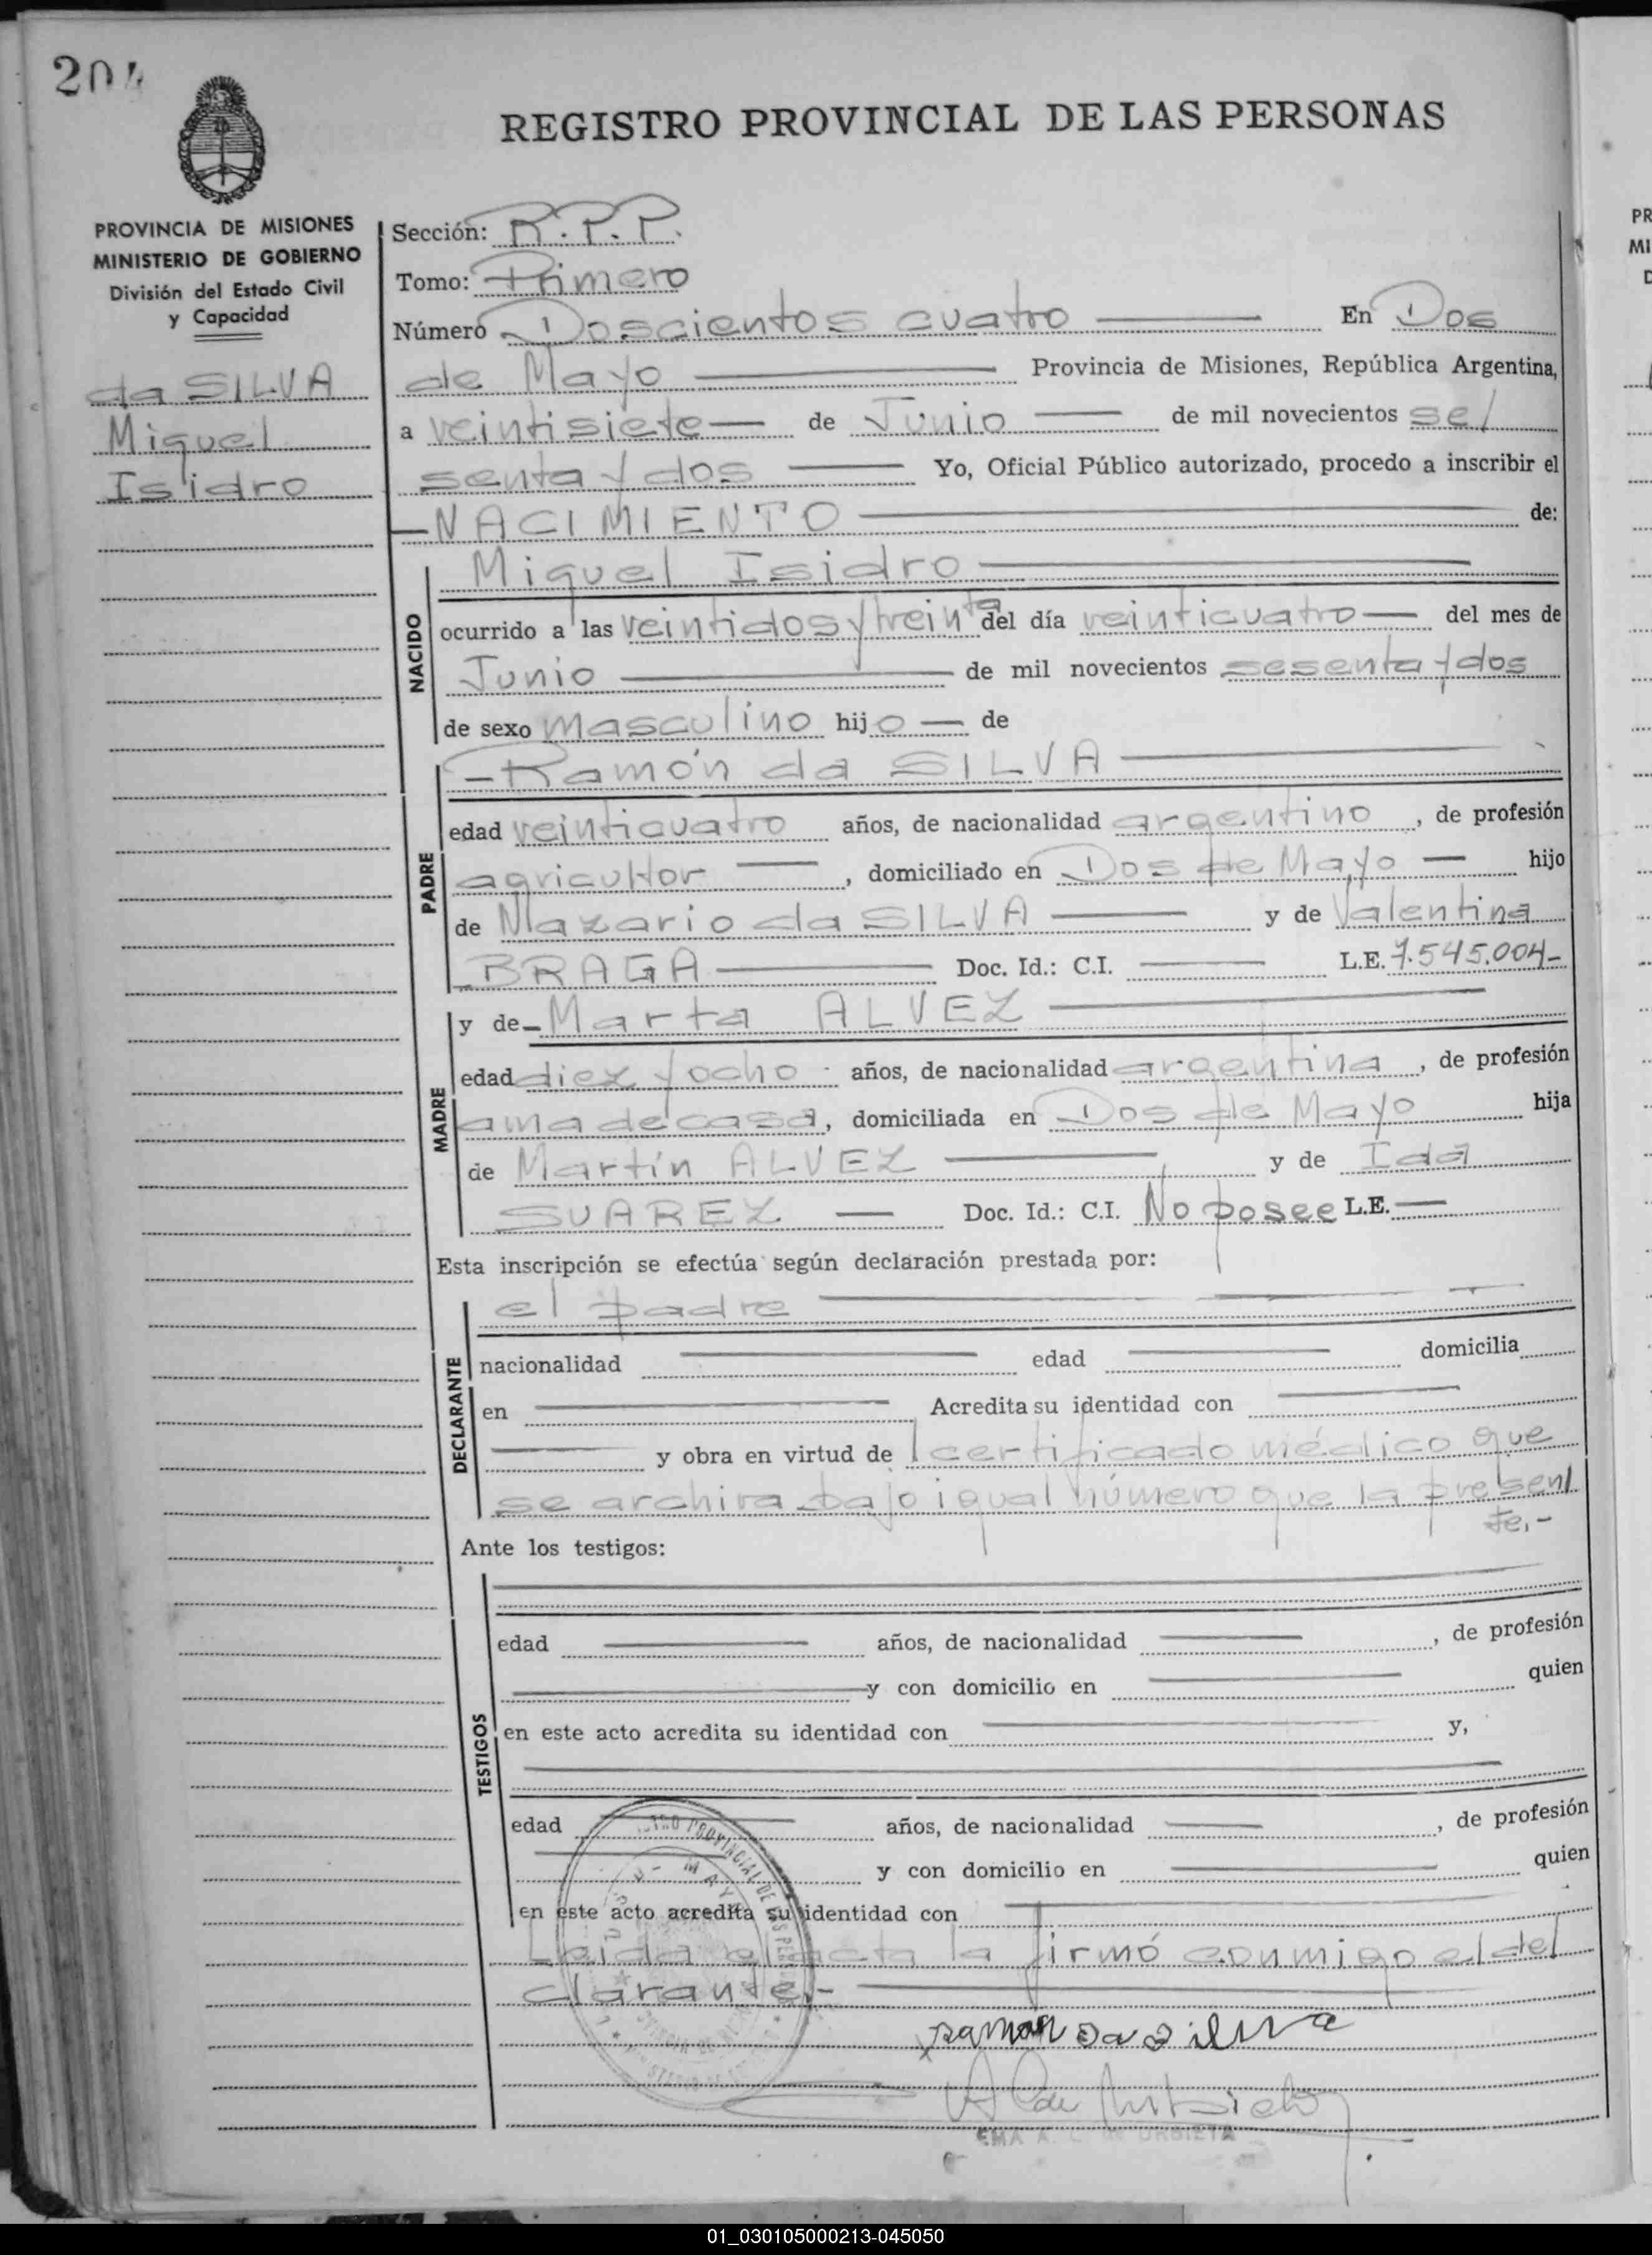 204
REGISTRO PROVINCIAL DE LAS PERSONAS
PROVINCIA DE MISIONES
MINISTERIO DE GOBIERNO
División del Estado Civil
y Capacidad
da SILVA
Miguel
Isidro
Sección: R.P.P.
Tomo: Primero
Número Doscientos cuatro En Dos
de Mayo Provincia de Misiones, República Argentina,
a veintisiete de Junio de mil novecientos se/
senta y dos Yo, Oficial Público autorizado, procedo a inscribir el
NACIMIENTO de:
NACIDO
Miguel Isidro
ocurrido a las veintidos y treinta del día veinticuatro del mes de
Junio de mil novecientos sesenta y dos
de sexo masculino hijo de
PADRE
Ramón da SILVA
edad veinticuatro años, de nacionalidad argentino, de profesión
agricultor, domiciliado en Dos de Mayo hijo
de Nazario da SILVA y de Valentina
BRAGA Doc. Id.: C.I. L.E. 7.545.004-
MADRE
y de Marta ALVEZ
edad diez y ocho años, de nacionalidad argentina, de profesión
ama de casa, domiciliada en Dos de Mayo hija
de Martín ALVEZ y de Ida
SUAREZ Doc. Id.: C.I. No posee L.E.
Esta inscripción se efectúa según declaración prestada por:
DECLARANTE
el padre
nacionalidad edad domicilia
en Acredita su identidad con
y obra en virtud de certificado médico que
se archiva bajo igual número que la presen/
te.-
Ante los testigos:
TESTIGOS
edad años, de nacionalidad , de profesión
y con domicilio en quien
en este acto acredita su identidad con y,
edad años, de nacionalidad , de profesión
y con domicilio en quien
en este acto acredita su identidad con
Leida el acta la firmó conmigo el de/
clarante.-
Ramon Da Silva
URBIETA
01_030105000213-045050
PR
MI